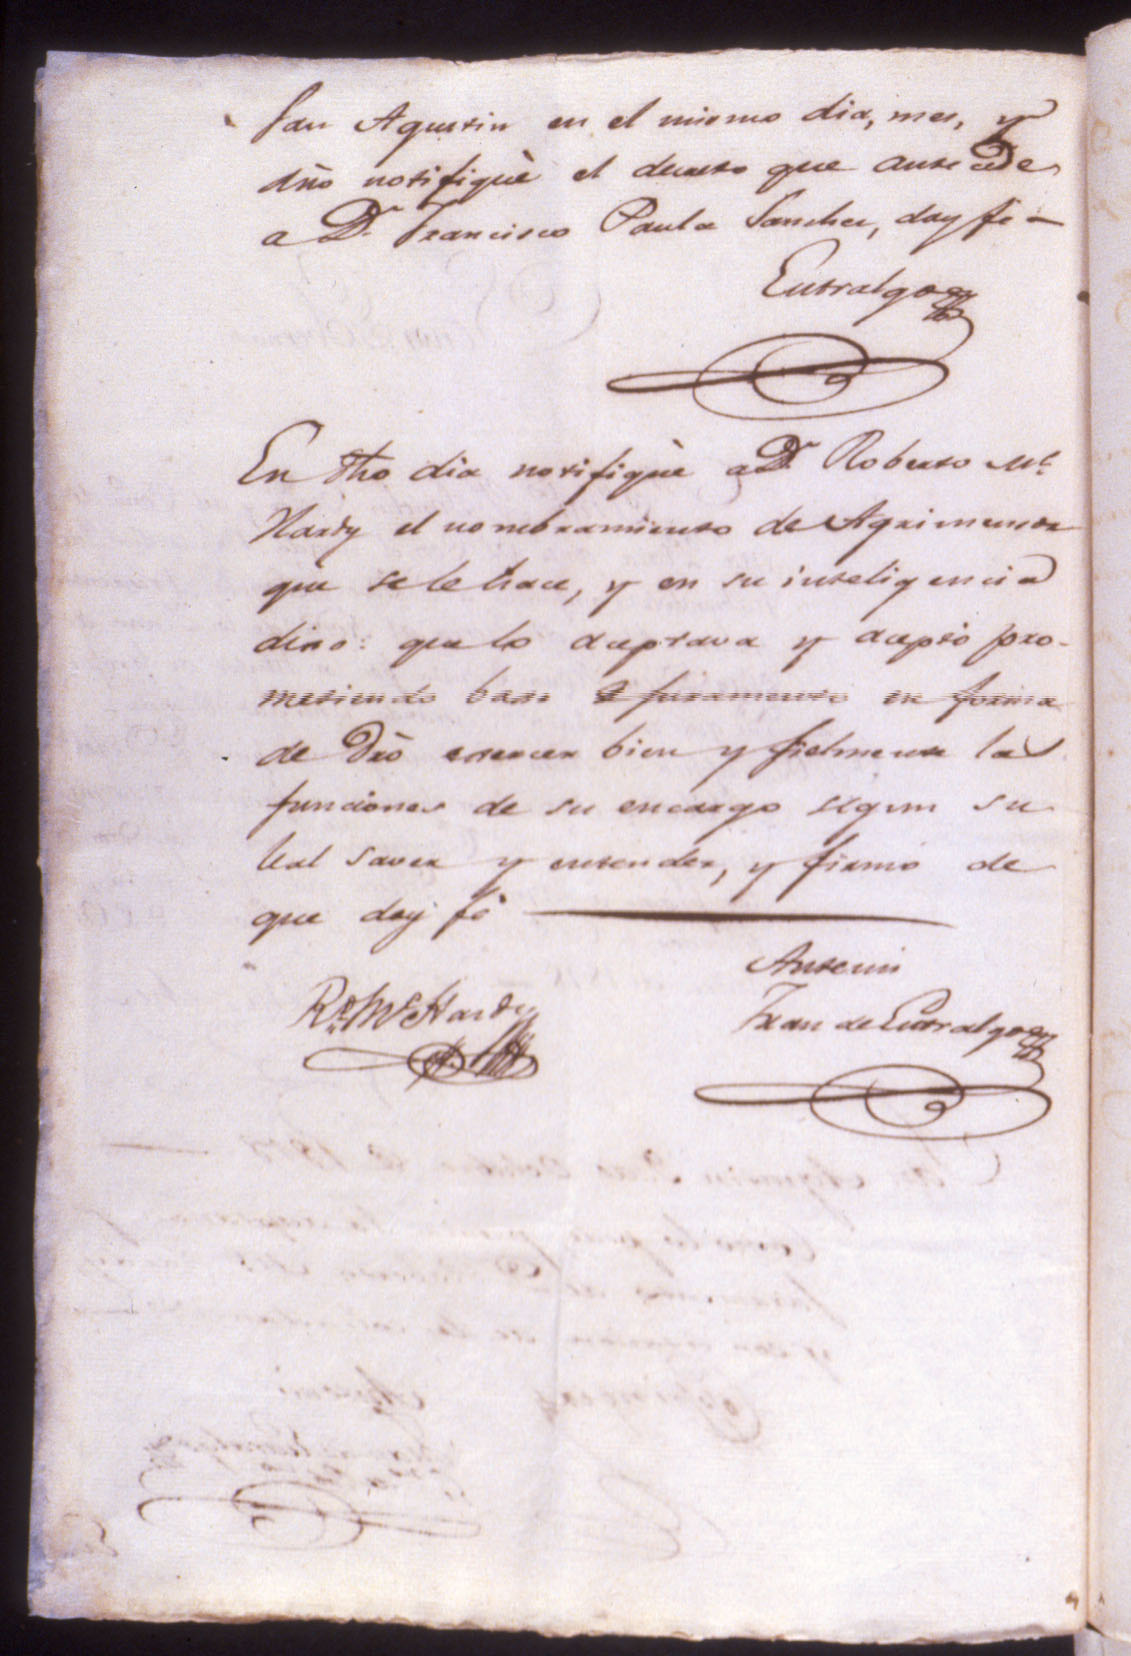 San Agustin en el mismo dia, mes, y
año notifiquè el decreto que antecede
a Dn. Francisco Paula Sanchez, doy fe -
Entralgo
En dho dia notifiquè a Dn. Roberto Mc.
Hardy el nombramiento de Agrimensor
que se le hace, y en su inteligencia
dixo: que lo aceptava y aceptó pro-
metiendo baxo juramento en forma
de dro exercer bien y fielmente las
funciones de su encargo segun su
leal saver y entender, y firmó de
que doy fè
Rt. Mc Hardy
Antemi
Juan de Entralgo